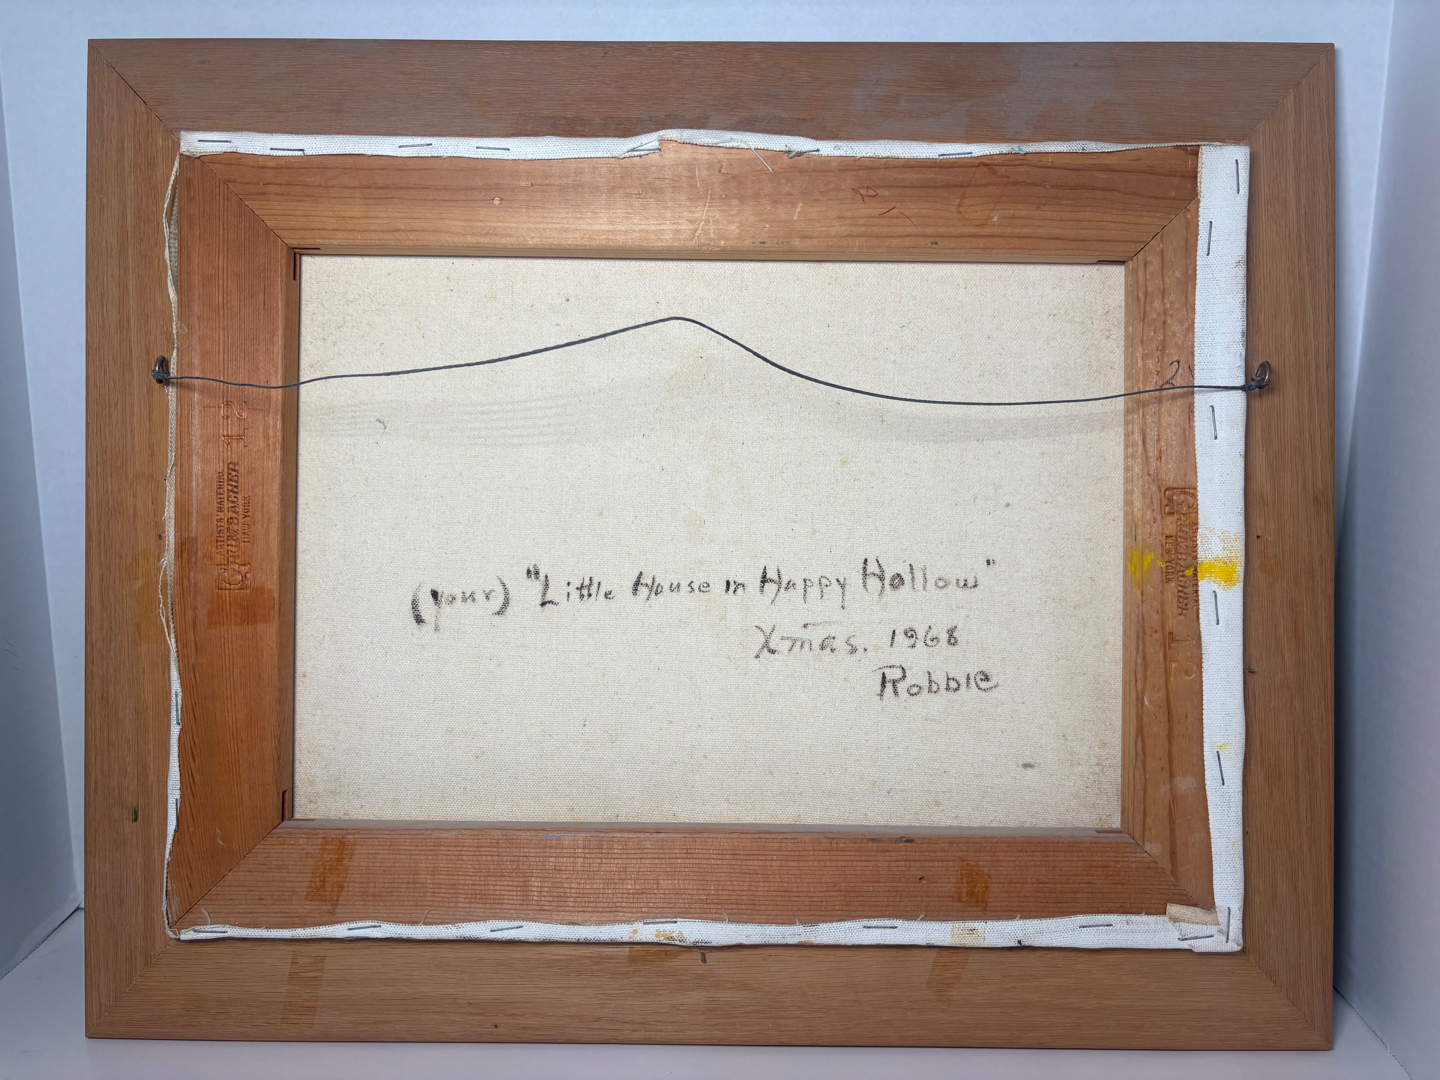 (your) "Little House in Happy Hollow"
Xmas. 1968
Robbie
ARTISTS' MATERIAL
GRUMBACHER
NEW YORK
12
2
GRUMBACHER
NEW YORK
12